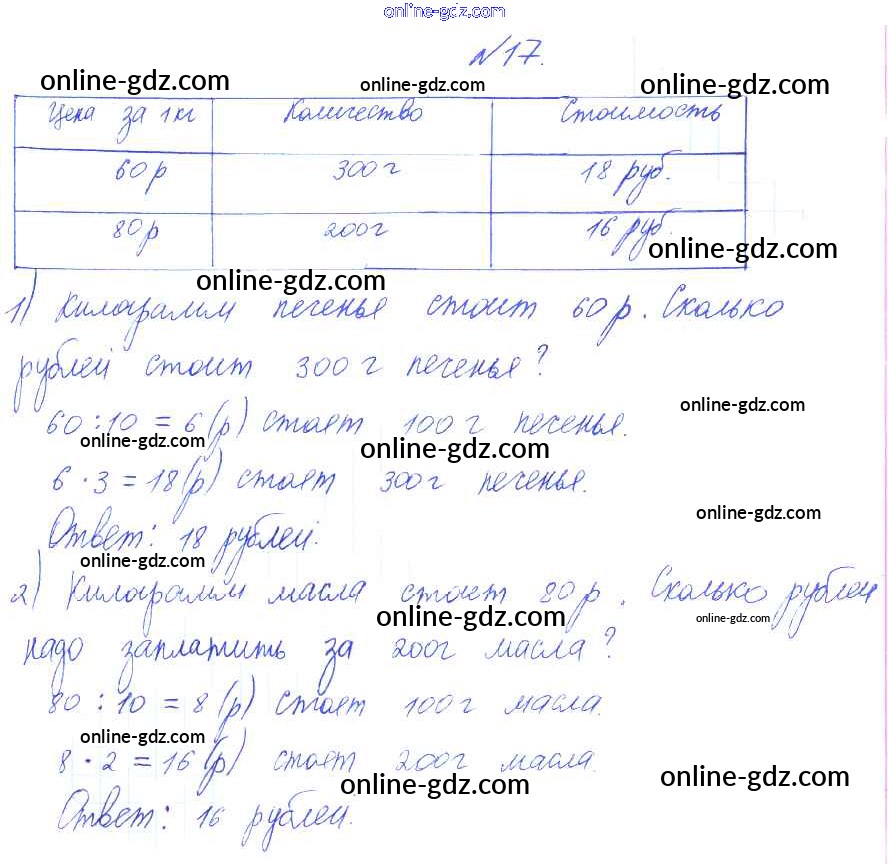 online-gdz.com
№17.
online-gdz.com online-gdz.com online-gdz.com
Цена за 1кг Количество Стоимость
60р 300г 18 руб.
80р 200г 16 руб.
online-gdz.com
online-gdz.com
1) Килограмм печенья стоит 60р. Сколько
рублей стоит 300г печенья?
online-gdz.com
60:10=6(р) стоит 100г печенья.
online-gdz.com online-gdz.com
6·3=18(р) стоит 300г печенья.
online-gdz.com
Ответ: 18 рублей.
online-gdz.com
2) Килограмм масла стоит 80р. Сколько рублей
online-gdz.com online-gdz.com
надо заплатить за 200г масла?
80:10=8(р) стоит 100г масла.
online-gdz.com
8·2=16(р) стоит 200г масла.
online-gdz.com online-gdz.com
Ответ: 16 рублей.